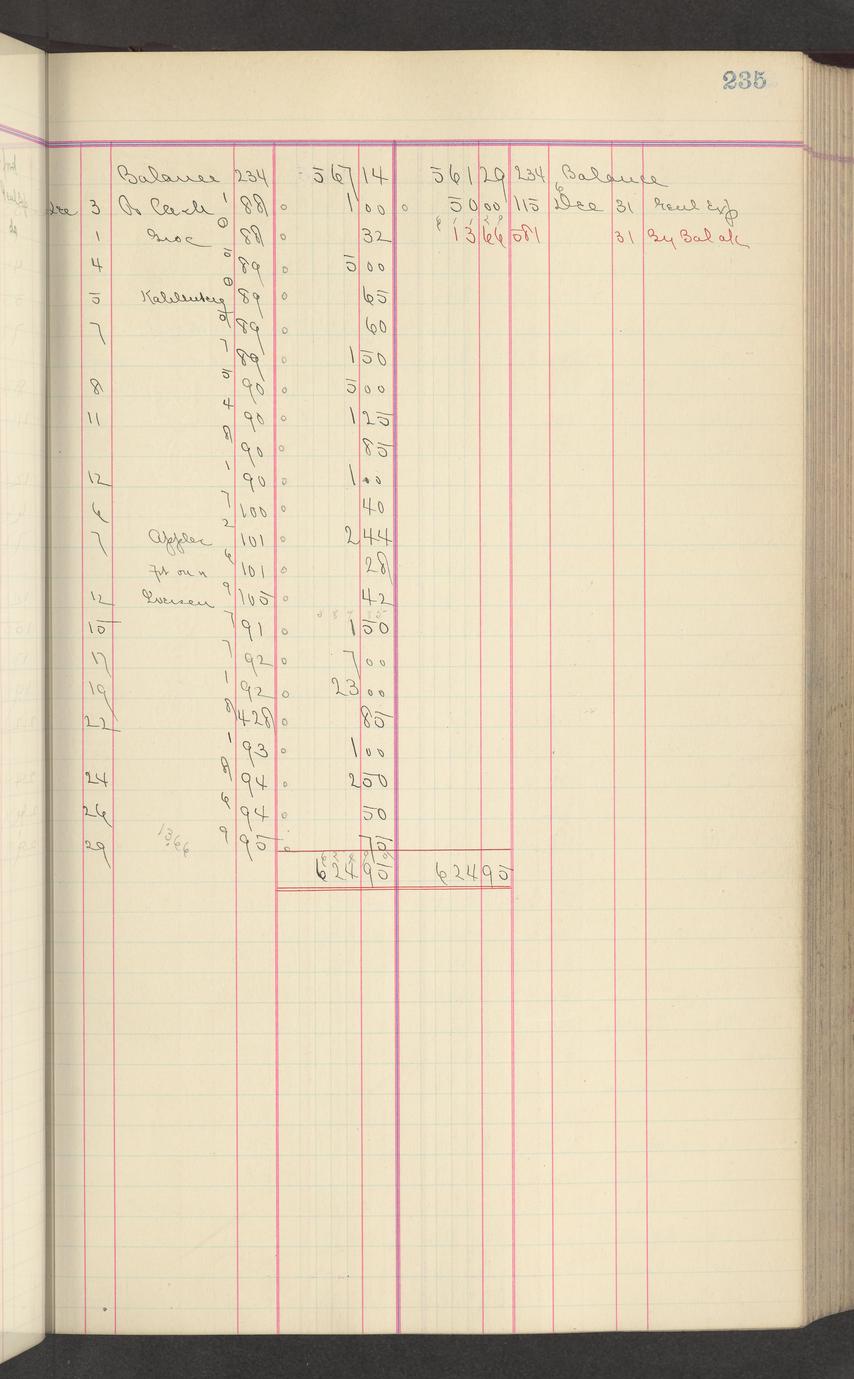 235
Balance 234 567 14 561 29 234 Balance
Dec 3 To Cash 1 88 1 00 50 00 115 Dec 31 Genl Exp
1 Groc 0 88 32 13 66 581 31 By Bal
4 5 89 5 00
5 Kahlenberg 0 89 65
7 89 60
7 89 1 50
8 5 90 5 00
11 4 90 1 25
8 90 85
12 1 90 1 00
6 7 100 40
7 Apples 2 101 2 44
6 101 28
12 Iversen 9 105 42
15 7 91 1 50
17 7 92 7 00
19 1 92 23 00
22 8 428 85
1 93 1 00
24 8 94 2 50
26 6 94 50
29 1366 9 95 75
624 95 624 95